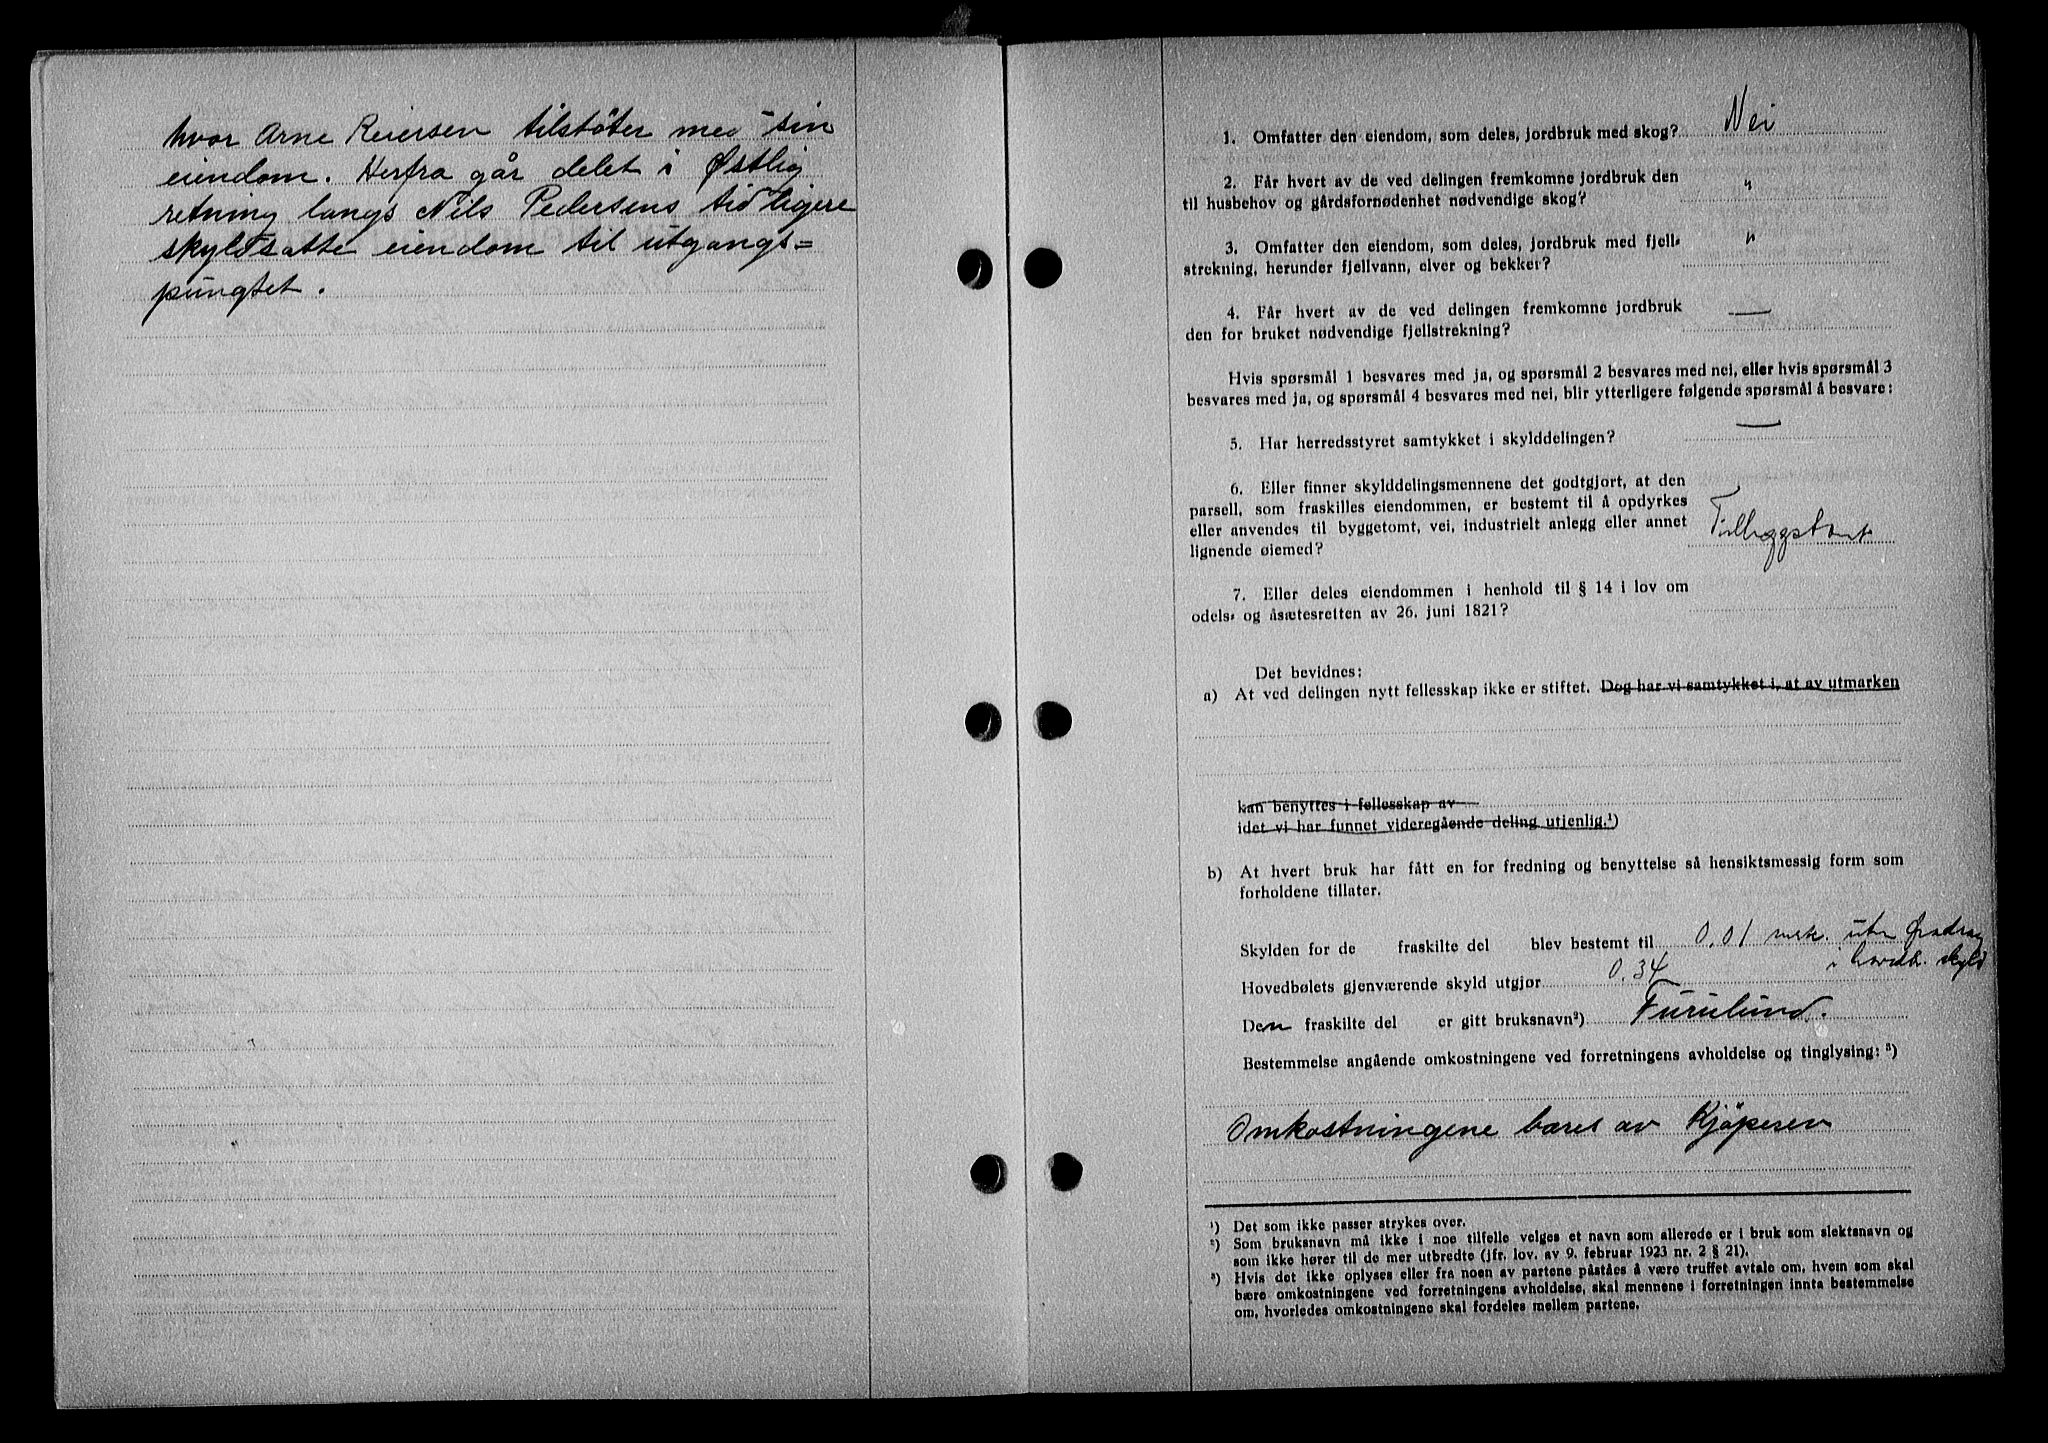 hvor Arne Reiersen tilstöter med sin
eiendom. Herfra går delet i Østlig
retning langs Nils Pedersens tidligere
skyldsatte eiendom til utgangs=
pungtet.
1. Omfatter den eiendom, som deles, jordbruk med skog? Nei
2. Får hvert av de ved delingen fremkomne jordbruk den
til husbehov og gårdsfornødenhet nødvendige skog? "
3. Omfatter den eiendom, som deles, jordbruk med fjell-
strekning, herunder fjellvann, elver og bekker? "
4. Får hvert av de ved delingen fremkomne jordbruk
den for bruket nødvendige fjellstrekning? —
Hvis spørsmål 1 besvares med ja, og spørsmål 2 besvares med nei, eller hvis spørsmål 3
besvares med ja, og spørsmål 4 besvares med nei, blir ytterligere følgende spørsmål å besvare:
5. Har herredsstyret samtykket i skylddelingen? —
6. Eller finner skylddelingsmennene det godtgjort, at den
parsell, som fraskilles eiendommen, er bestemt til å opdyrkes
eller anvendes til byggetomt, vei, industrielt anlegg eller annet
lignende øiemed? Tilleggstomt
7. Eller deles eiendommen i henhold til § 14 i lov om
odels- og åsætesretten av 26. juni 1821?
Det bevidnes:
a) At ved delingen nytt fellesskap ikke er stiftet. Dog har vi samtykket i, at av utmarken
kan benyttes i fellesskap av
idet vi har funnet videregående deling utjenlig.¹)
b) At hvert bruk har fått en for fredning og benyttelse så hensiktsmessig form som
forholdene tillater.
Skylden for de fraskilte del blev bestemt til 0.01 mrk. uten fradrag
i hovedb. skyld
Hovedbølets gjenværende skyld utgjør 0.34
Den fraskilte del er gitt bruksnavn²) Furulund.
Bestemmelse angående omkostningene ved forretningens avholdelse og tinglysing: ³)
Omkostningene bæres av Kjöperen
¹) Det som ikke passer strykes over.
²) Som bruksnavn må ikke i noe tilfelle velges et navn som allerede er i bruk som slektsnavn og
som ikke hører til de mer utbredte (jfr. lov. av 9. februar 1923 nr. 2 § 21).
³) Hvis det ikke oplyses eller fra noen av partene påståes å være truffet avtale om, hvem som skal
bære omkostningene ved forretningens avholdelse, skal mennene i forretningen innta bestemmelse
om, hvorledes omkostningene skal fordeles mellem partene.